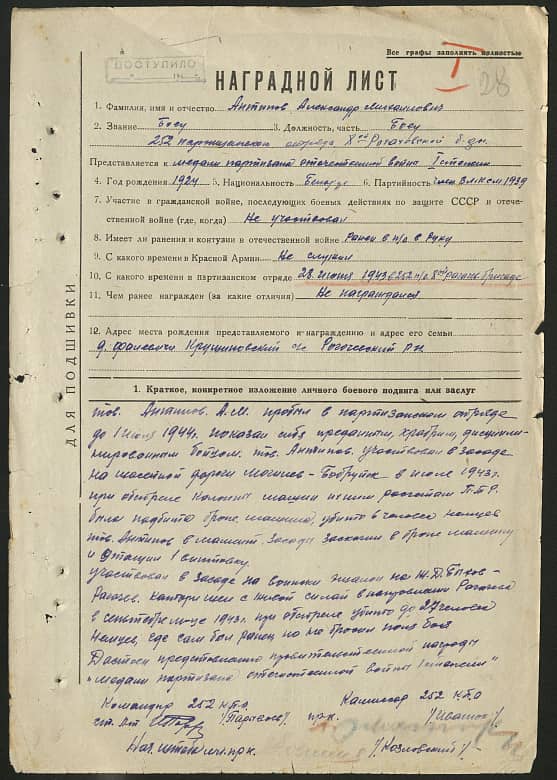 Все графы заполнять полностью
I
28
ПОСТУПИЛО
НАГРАДНОЙ ЛИСТ
1. Фамилия, имя и отчество Антипов Александр Михайлович
2. Звание Боец 3. Должность, часть Боец
252 партизанского отряда 8ой Рогачевской б-ды
Представляется к медали партизана отечественной войны I степени
4. Год рождения 1924 5. Национальность Белорус 6. Партийность член ВЛКСМ 1939
7. Участие в гражданской войне, последующих боевых действиях по защите СССР и отече-
ственной войне (где, когда) Не участвовал
8. Имеет ли ранения и контузии в отечественной войне Ранен в п/о в руку
9. С какого времени в Красной Армии Не служил
10. С какого времени в партизанском отряде 28 июня 1943 в 252 п/о 8ой рогачев. бригаде
11. Чем ранее награжден (за какие отличия) Не награждался
12. Адрес места рождения представляемого к награждению и адрес его семьи
д. Фалевичи Крушиновский Рогачевский р-н
ДЛЯ ПОДШИВКИ
1. Краткое, конкретное изложение личного боевого подвига или заслуг
тов. Антипов А.М. пробыл в партизанском отряде
до 1 июня 1944г. показал себя преданным, храбрым, дисципли-
нированным бойцом. тов. Антипов участвовал в засаде
на шоссейной дороги Могилев-Бобруйск в июле 1943г.
при обстреле колонны машин расчетом П.Т.Р.
была подбита броне машина, убито 4 человека немцев
тов. Антипов в момент засады заскочил в броне машину
и 1 винтовку.
участвовал в засаде на на Ж.Д. Быхов-
Рогачев. с живой силой в направлении Рогачева
в сентябре м-це 1943г. при обстреле убито до 27 человек
немцев, где сам был ранен но не бросил поля боя
Достоин представлению правительственной награды
"медали партизана отечественной войны I степени"
Командир 252 п/о Комиссар 252 п/о
ст. л-т
Нач. штаба мл. /Козловский/